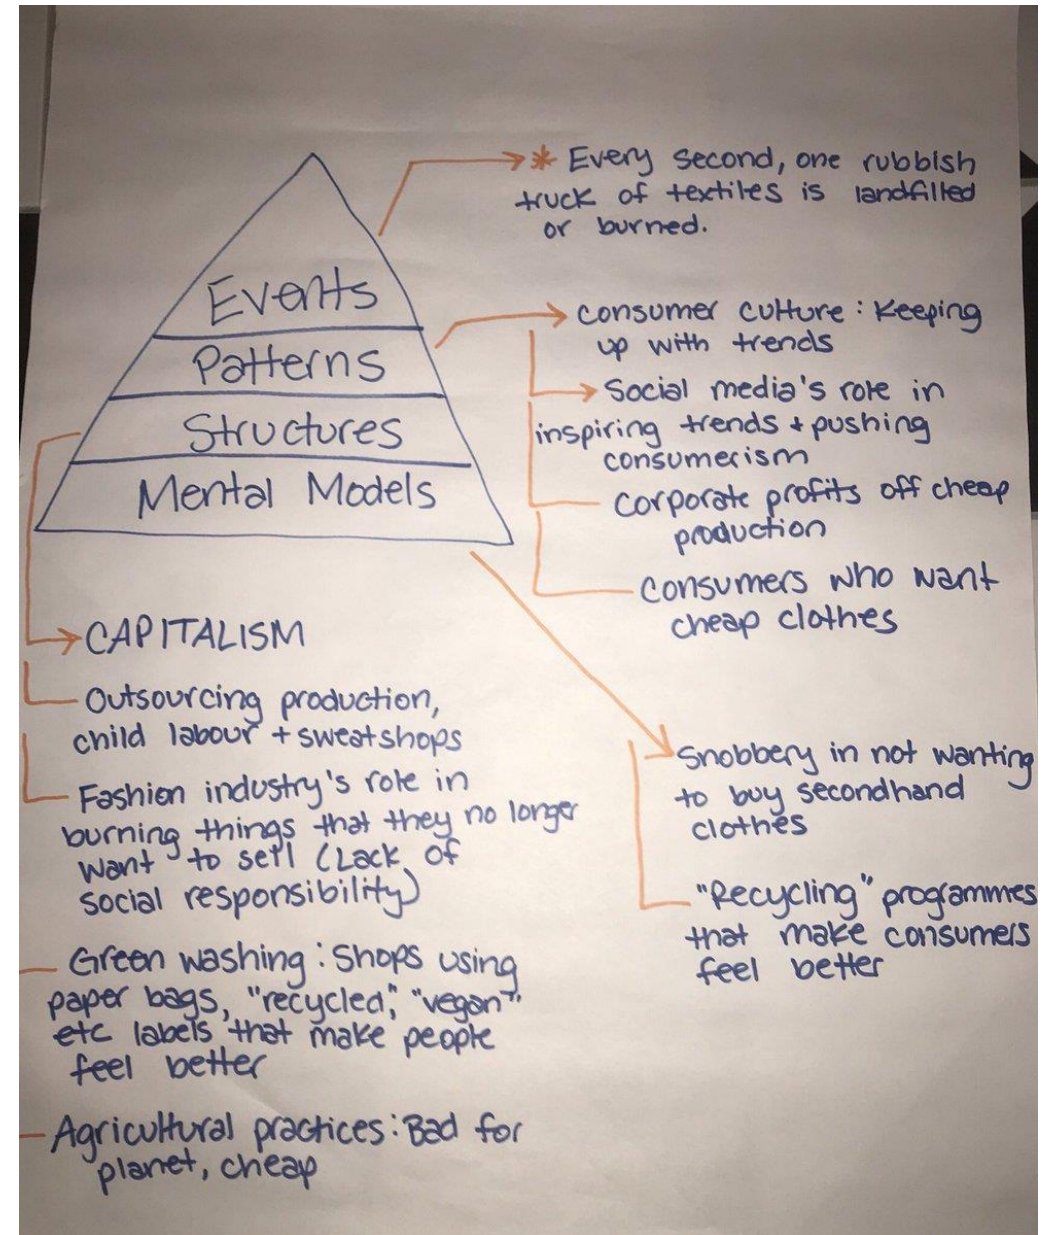 * Every second, one rubbish
truck of textiles is landfilled
or burned.
Events
Patterns
Structures
Mental Models
consumer culture : Keeping
up with trends
Social media's role in
inspiring trends + pushing
consumerism
Corporate profits off cheap
production
Consumers who want
cheap clothes
CAPITALISM
Outsourcing production,
child labour + sweatshops
Fashion industry's role in
burning things that they no longer
want to sell (Lack of
social responsibility)
Green washing : Shops using
paper bags, "recycled," "vegan"
etc labels that make people
feel better
Agricultural practices : Bad for
planet, cheap
Snobbery in not wanting
to buy secondhand
clothes
"Recycling" programmes
that make consumers
feel better